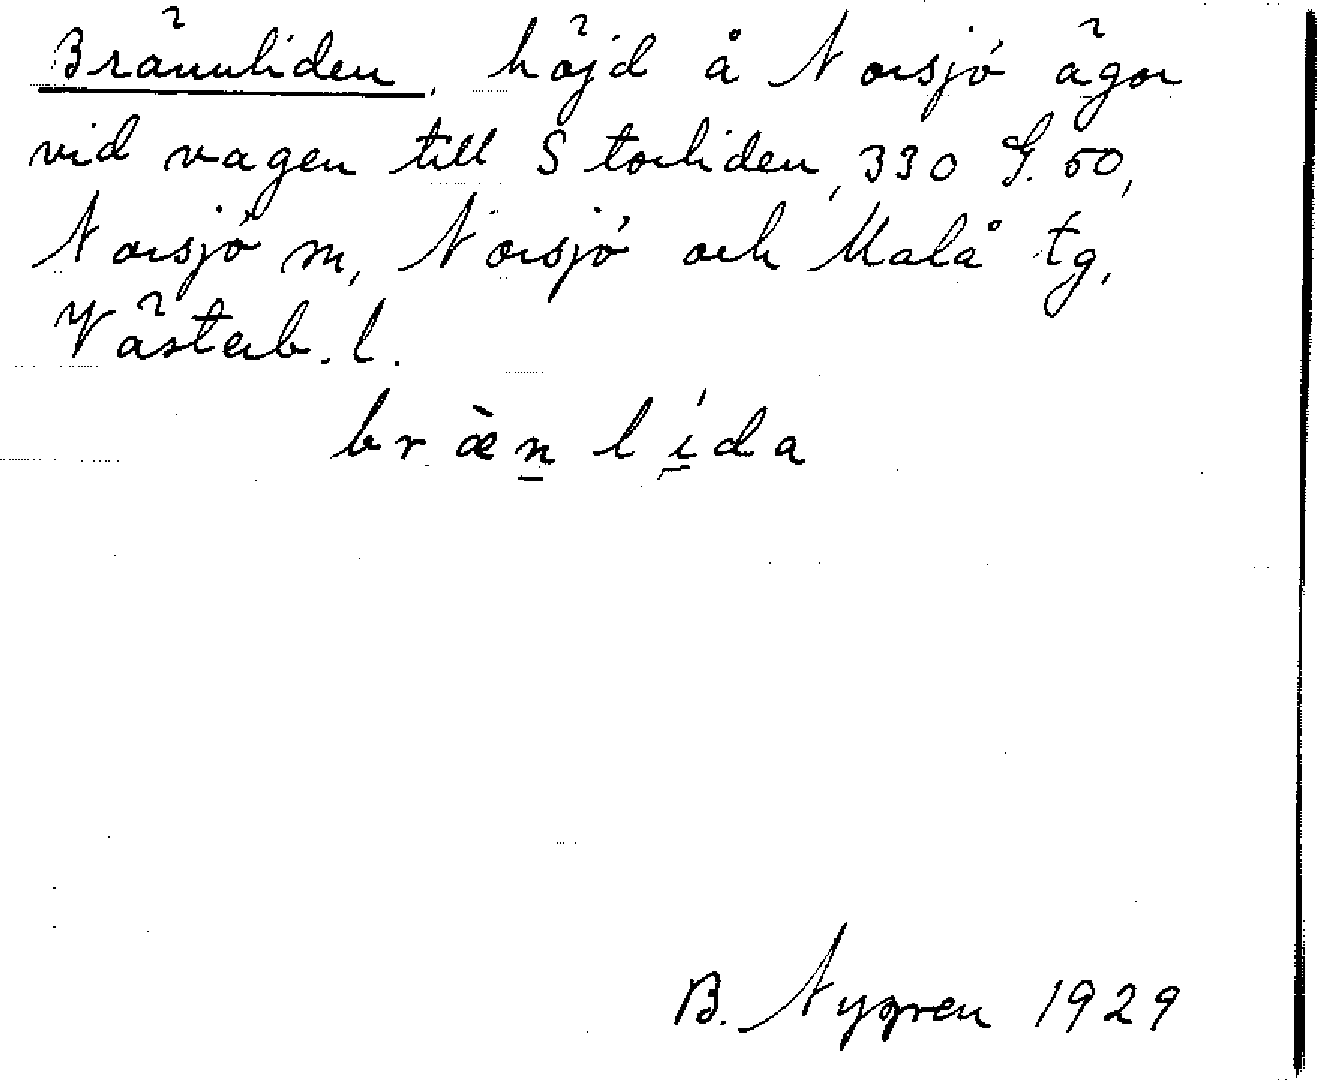 Brännliden, höjd å Norsjö ägor
vid vagen till Storliden, 330 G. 50,
Norsjö sn, Norsjö och Malå tg,
Västerb. l.
bræ̀n lída
B. Nygren 1929